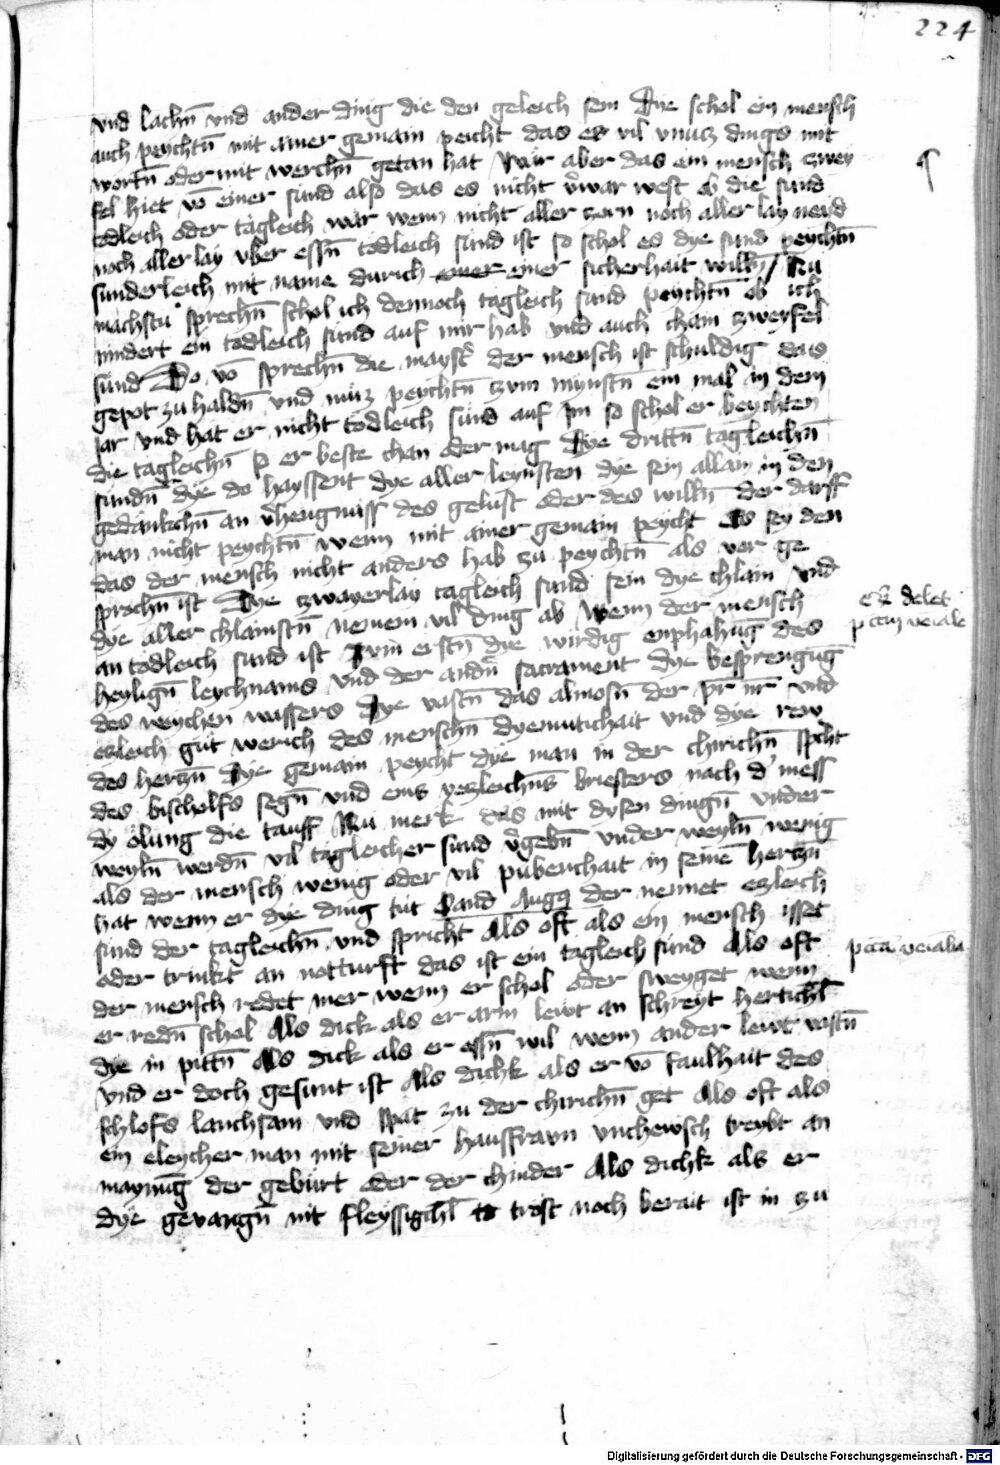 224
vnd lachn̄ vnd ander ding die den geleich sein Dye schol ein mensch
auch peychtn̄ mit ainer gemain peicht das er vil vnnucz dings mit
wortn̄ oder mit werchn̄ getan hat Wär aber das ein mensch zwey
fel hiet vō einer sund also das es nicht v̄war west ob die sund
todleich oder tägleich wär wenn nicht aller zorn noch aller lay neyd
noch aller lay vber essn̄ todleich sünd ist so schol es dye sund peychtn̄
sunderleich mit name durich einer sicherhait willn̄ / Nu
machstu sprechn̄ schol ich dennoch tägleich sund peychtn̄ ob ich
nindert ein todleich sund auf mir hab vnd auch chain zweyfel
sund Do vō sprechn̄ die mayst̄ der mensch ist schuldig das
gepot zu haldn̄ vnd müz peychtn̄ zum mynstn̄ ein mal in dem
jar vnd hat er nicht todleich sünd auf ym so schol er beychten
die tägleichn̄ so er beste chan oder mag Dye drittn̄ tägleichn̄
sundn̄ dye do hayssent dye aller leynsten dye sein allain in den
gedänkchn̄ an v̄hengnüss des gelust oder des willn̄ der darff
man nicht peychtn̄ wenn mit ainer gemain peycht Es sey den
das der mensch nicht anders hab zu peychtn̄ als vor ge
sprochn̄ ist Dye zwayerlay tägleich sund sein dye chlain vnd
dye aller chlainstn̄ nemem vil ding ab Wenn der mensch
an todleich sund ist Zum erstn̄ dye wirdig enphahūg des
heylign̄ leychnams vnd der andn̄ sacrament Dye besprengūg
des weychen wassers Dye vastn̄ das almosn̄ der pr̄ nr̄ vnd
ezleich güt werich des menschn̄ dyemutichait vnd dye rew
des herczn̄ Dye gemain peycht dye man in der chirichn̄ spcht
des bischolfs segn̄ vnd eins yezleichn̄s briesters nach d' mess
dy ölung die tauff Nu merk das mit dysen dingn̄ vnder
weyln̄ werdn̄ vil tägleicher sund v̄gebn̄ vnder weyln̄ wenig
als der mensch wenig oder vil pubenchait in seinē herczn̄
hat wenn er dye ding tüt Sand Augꝫ der nennet ezleich
sund der tägleichn̄ vnd spricht Als oft als ein mensch isset
oder trinkt an notturft das ist ein tägleich sünd Als oft
der mensch redet mer wenn er schol oder sweyget wenn
er redn̄ schol Als dick als er arm lewt an schreyt hertichl̄
dye in pittn̄ Als dick als er essn̄ wil wenn ander lewt vastn̄
vnd er doch gesunt ist Als dichk als er vō faulhait des
schlofs lanchsam vnd spät zu der chirichn̄ get Als oft als
ein eleycher man mit seiner hausfrawn vnchewsch treybt an
maynūg der gebürt oder der chinder Als dichk als er
dye gevangn̄ nit fleyssigchl̄ trost noch berait ist in zu
delet
pctm̄ veniale
pctā venialia
Digitalisierung gefördert durch die Deutsche Forschungsgemeinschaft - DFG